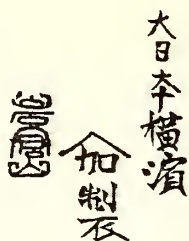 大日本横濱
加製